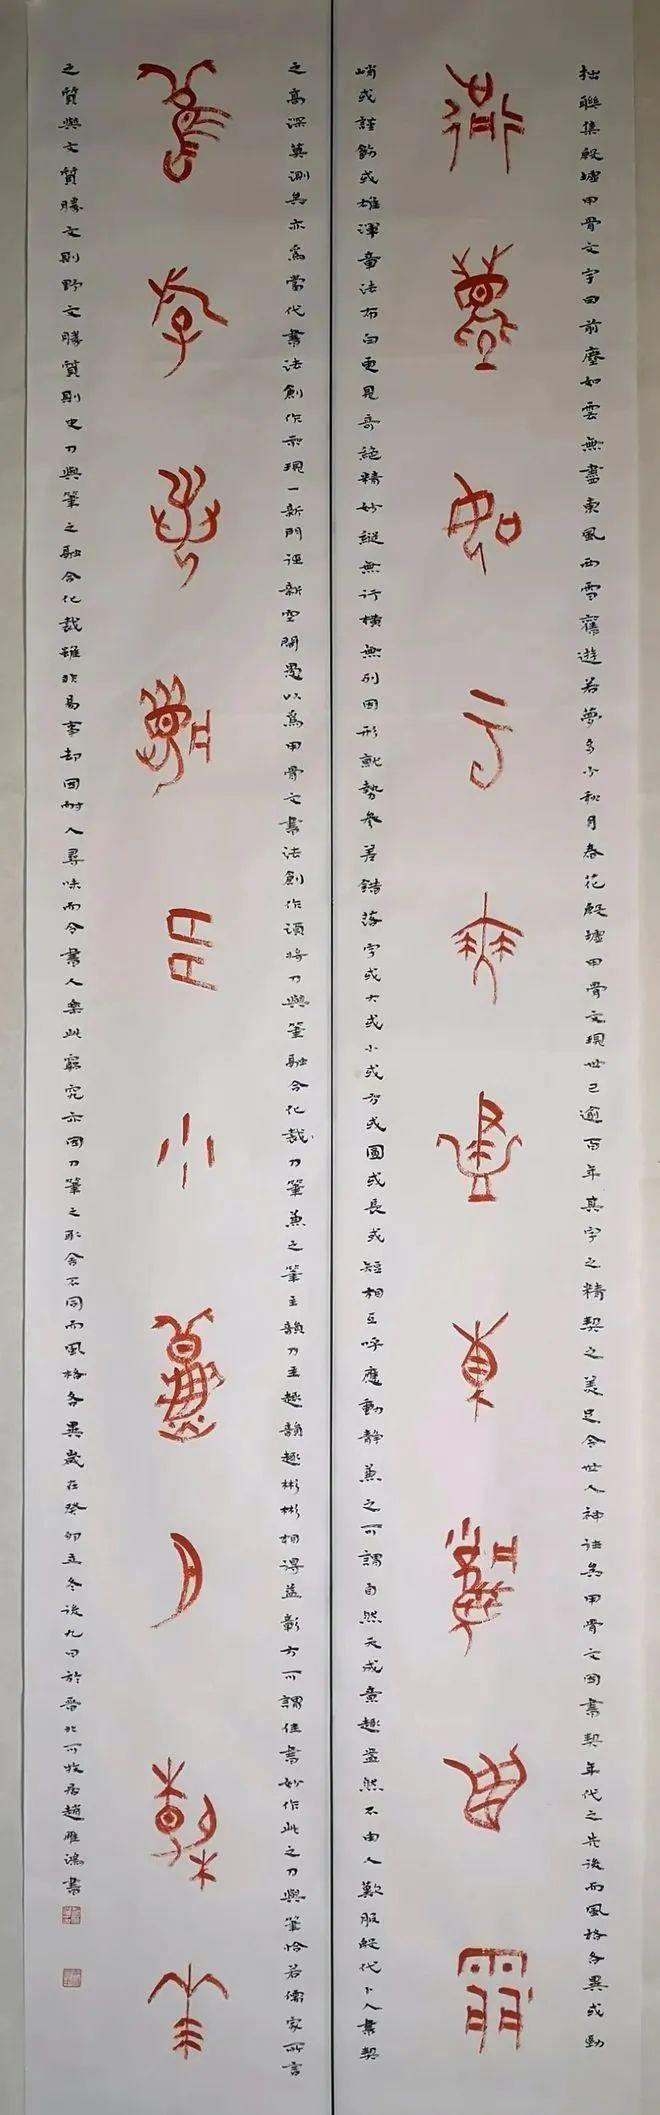 拙聯集殷墟甲骨文字曰前塵如雲無盡東風西雪舊遊若夢多少秋月春花殷墟甲骨文現世已逾百年其字之精契之美足令世人神往焉甲骨文因書契年代之先後而風格各異或勁
前塵如云無盡東風西雪
峭或謹飭或雄渾章法布白更見奇絕精妙縱無行橫無列因形就勢參差錯落字或大或小或方或圓或長或短相互呼應動靜兼之可謂自然天成意趣盎然不由人歎服殷代卜人書契
之高深莫測焉亦為當代書法創作示現一新門徑新空間愚以為甲骨文書法創作須將刀與筆融合化裁刀筆兼之筆主韻刀主趣韻趣彬彬相得益彰方可謂佳書妙作此之刀與筆恰若儒家所言
舊遊若夢多少秋月春花
之質與文質勝文則野文勝質則史刀與筆之融合化裁雖非易事却因耐人尋味而令書人樂此窮究亦因刀筆之取舍不同而風格各異歲在癸卯立冬後九日於晉北可牧居趙雁鴻書